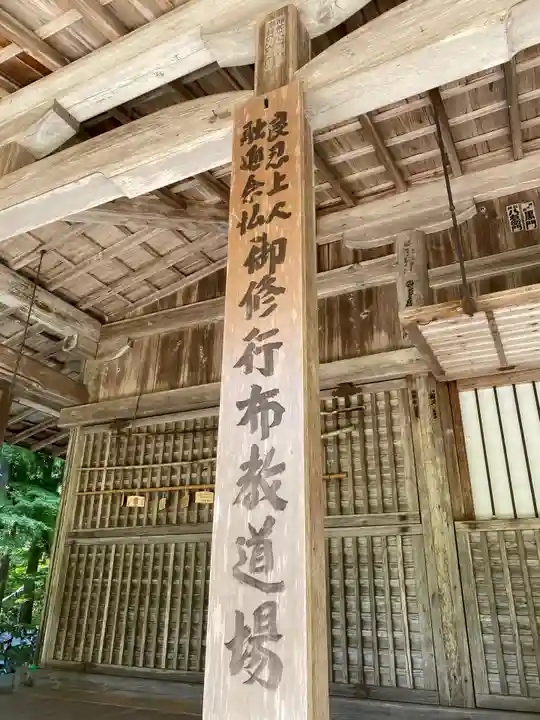 良忍上人
融通念仏
御修行布教道場